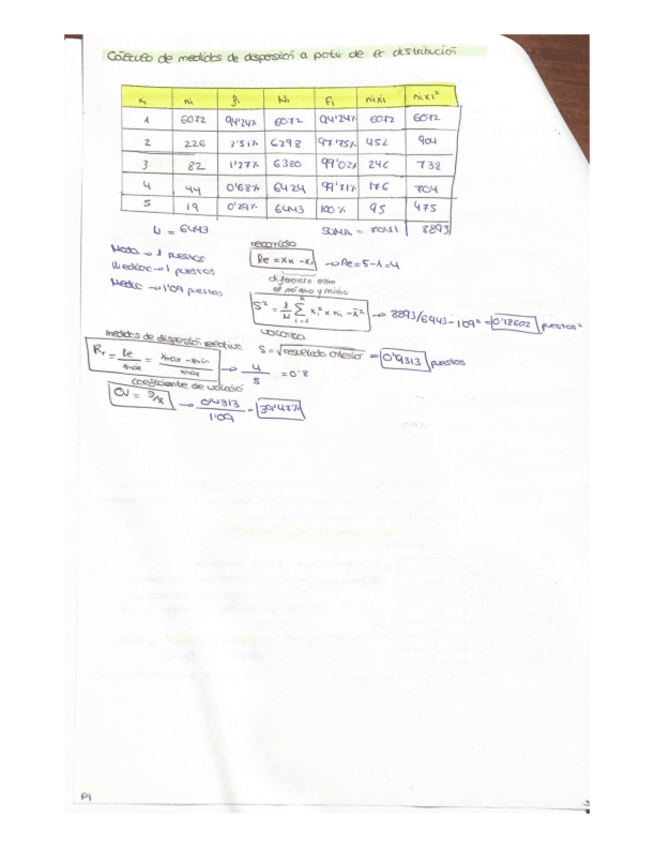 Cálculo de medidas de dispersión a partir de la distribución
xi ni fi Ni Fi nixi nixi²
1 6072 94'24% 6072 94'24% 6072 6072
2 226 3'51% 6298 97'75% 452 904
3 82 1'27% 6380 99'02% 246 738
4 44 0'68% 6424 99'71% 176 704
5 19 0'29% 6443 100% 95 475
N = 6443 SUMA = 7041 8893
Moda → 1 puestos
Mediana → 1 puestos
Media → 1'09 puestos
recorrido
Re = xn - x1 → Re = 5-1 = 4
diferencia entre
el máximo y mínimo
S² = 1/N Σ xi² x ni - x̄² → 8893/6443 - 1'09² = 0'18602 puestos²
varianza
S = √resultado anterior = 0'4313 puestos
medidas de dispersión relativa
Rr = Re/xmax = xmax - xmin/xmax → 4/5 = 0'8
coeficiente de variación
CV = S/x̄ → 0'4313/1'09 = 39'47%
P1